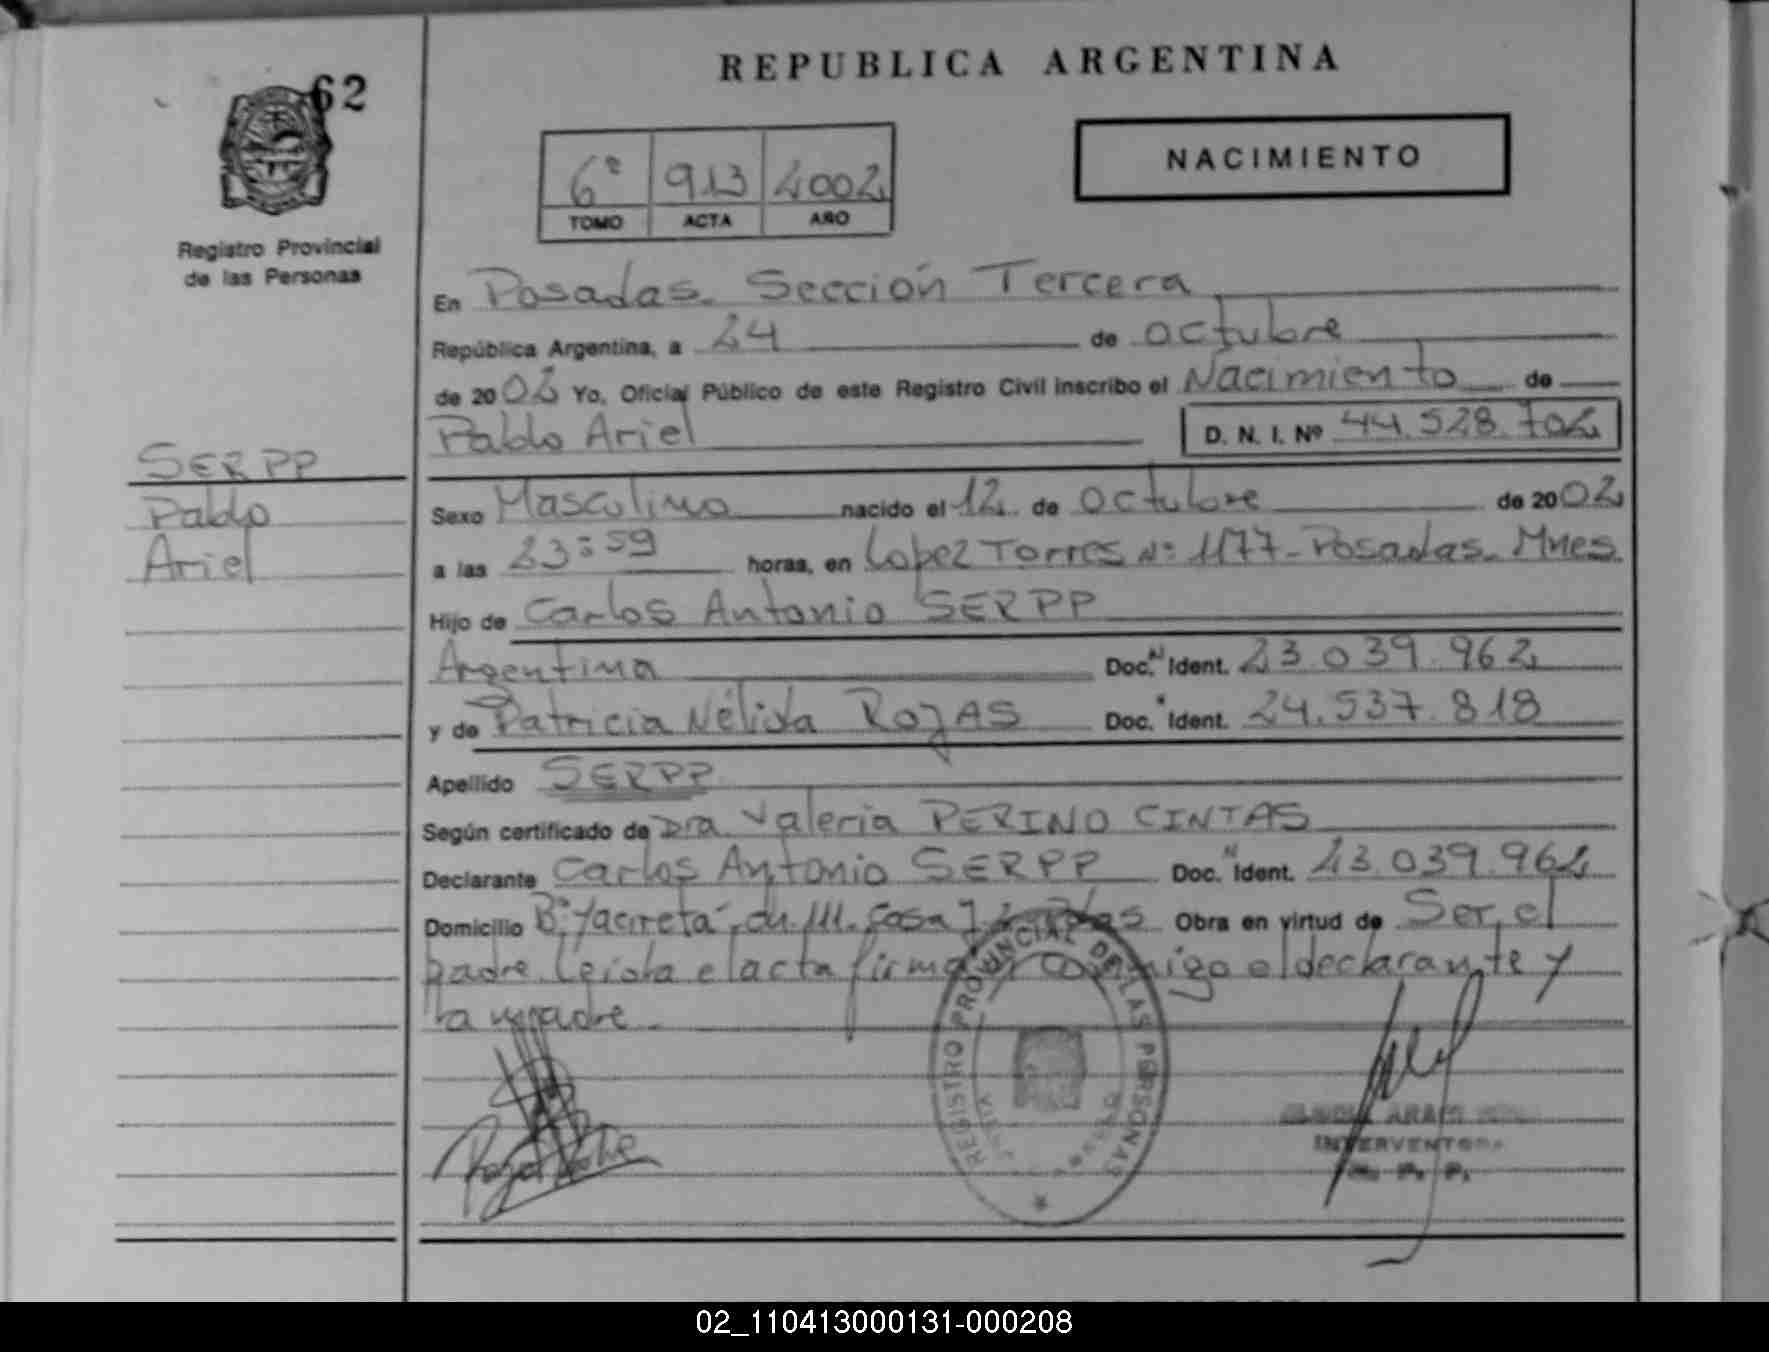 REPUBLICA ARGENTINA
62
NACIMIENTO
6º 913 2002
TOMO ACTA AÑO
Registro Provincial
de las Personas
En Posadas Sección Tercera
República Argentina, a 24 de octubre
de 2002 Yo, Oficial Público de este Registro Civil inscribo el Nacimiento de
Pablo Ariel D. N. I. Nº 44.528.702
SERPP
Pablo
Ariel
Sexo Masculino nacido el 12 de octubre de 2002
a las 23:59 horas, en Lopez Torres Nº 1177 - Posadas - Mnes
Hijo de Carlos Antonio SERPP
Argentina Doc. Ident. 23.039.962
y de Patricia Nélida ROJAS Doc. Ident. 24.537.818
Apellido SERPP
Según certificado de Dra. Valeria PERINO CINTAS
Declarante Carlos Antonio SERPP Doc. Ident. 23.039.962
Domicilio Bº Yacireta Casa Obra en virtud de Ser el
padre. Leida el acta firman conmigo el declarante y
la madre.
REGISTRO PROVINCIAL DE LAS PERSONAS
INTERVENTORA
02_110413000131-000208